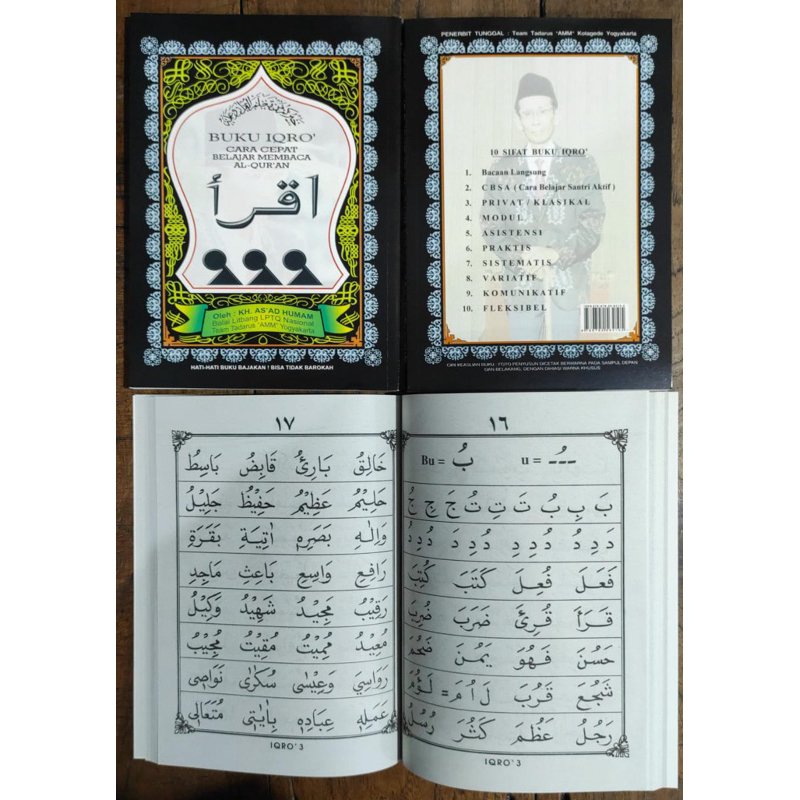 خيركم من تعلم القرآن وعلمه
BUKU IQRO'
CARA CEPAT
BELAJAR MEMBACA
AL-QUR'AN
اقرأ
Oleh : KH. AS'AD HUMAM
Balai Litbang LPTQ Nasional
Team Tadarus "AMM" Yogyakarta
HATI-HATI BUKU BAJAKAN ! BISA TIDAK BAROKAH
PENERBIT TUNGGAL : Team Tadarus "AMM" Kotagede Yogyakarta
10 SIFAT BUKU IQRO'
1. Bacaan Langsung
2. C B S A ( Cara Belajar Santri Aktif )
3. PRIVAT / KLASIKAL
4. MODUL
5. ASISTENSI
6. PRAKTIS
7. SISTEMATIS
8. VARIATIF
9. KOMUNIKATIF
10. FLEKSIBEL
CIRI KEASLIAN BUKU : FOTO PENYUSUN DICETAK BERWARNA PADA SAMPUL DEPAN
DAN BELAKANG, DENGAN DAHASI WARNA KHUSUS
١٦
u = ـُ Bu = بُ
بَ بِ بُ تَ تِ تُ جَ جِ جُ
فَعَلَ فُعِلَ كَتَبَ كُتِبَ
قَرَأَ قُرِئَ ضَرَبَ ضُرِبَ
حَسُنَ فَهُوَ يَمُنَ
شَجُعَ قَرُبَ لَ اُ مَ = لَؤُمَ
رَجُلُ عَظُمَ كَثُرَ رُسُلُ
IQRO'3
١٧
خَالِقُ بَارِئُ قَابِضُ بَاسِطُ
حَلِيْمُ عَظِيْمُ حَفِيْظُ جَلِيْلُ
وَاِلٰهِ بَصَرِهٖ اٰتِيَةِ بَقَرَةِ
رَافِعِ وَاسِعِ بَاعِثِ مَاجِدِ
رَقِيْبُ مَجِيْدُ شَهِيْدُ وَكِيْلُ
مُعِيْدُ مُمِيْتُ مُقِيْتُ مُجِيْبُ
رَوَاسِيَ وَعِيْسٰى سُكَارٰى نَوَاصِى
عَمَلِهٖ عِبَادِهٖ بِاٰيٰتِى مُتَعَالِى
IQRO'3